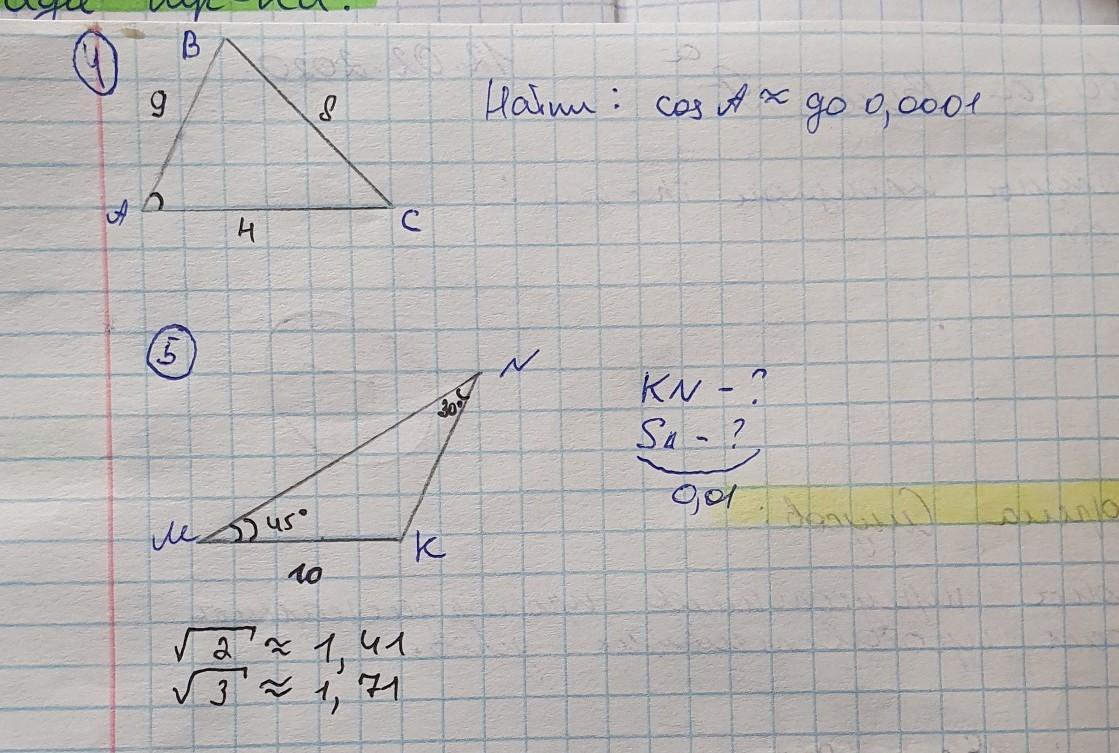 4
B
9
8
A
4
C
Найти: cos A ≈ до 0,0001
5
N
30°
KN - ?
S∆ - ?
0,01
M
45°
K
10
√2 ≈ 1,41
√3 ≈ 1,71